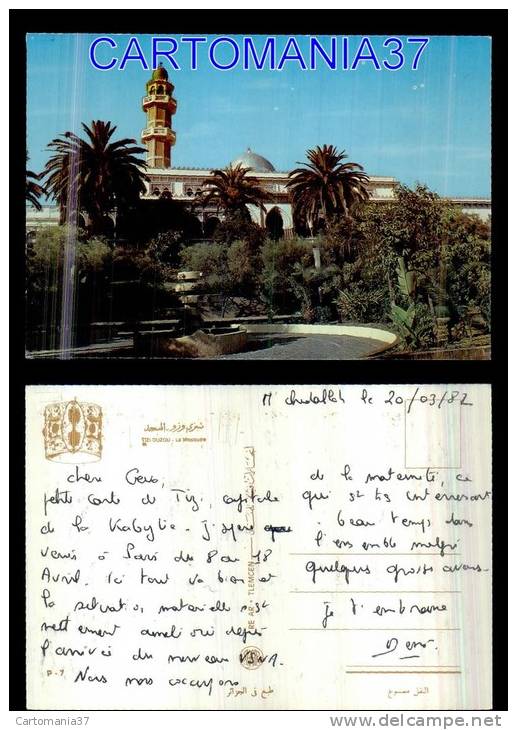 CARTOMANIA37
M'chedallah le 20/03/82
تيزي وزو - المسجد
TIZI OUZOU - La Mosquée
chère
petite carte de Tizi, capitale
de la Kabylie. J'espère
venir à Paris du 8 au 18
Avril. Ici tout va bien et
la situation matérielle s'est
nettement améliorée depuis
l'arrivée du nouveau VSNA.
Nous nous occupons
de la maternité, ce
qui est très intéressant
beau temps dans
l'ensemble malgré
quelques grosses averses.
Je t'embrasse
TLEMCEN
P-7
طبع في الجزائر
النقل ممنوع
Cartomania37